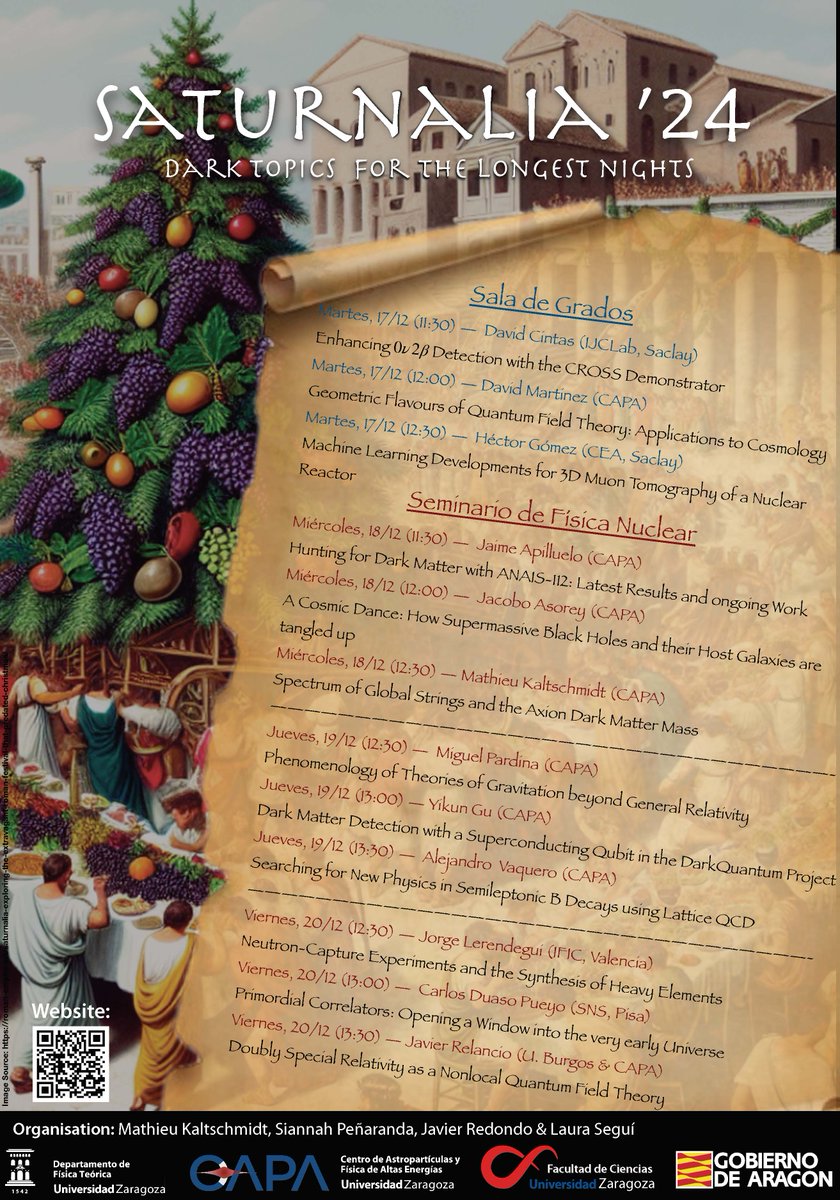 SATURNALIA '24
DARK TOPICS FOR THE LONGEST NIGHTS
Sala de Grados
Martes, 17/12 (11:30) — David Cintas (IJCLab, Saclay)
Enhancing 0ν2β Detection with the CROSS Demonstrator
Martes, 17/12 (12:00) — David Martínez (CAPA)
Geometric Flavours of Quantum Field Theory: Applications to Cosmology
Martes, 17/12 (12:30) — Héctor Gómez (CEA, Saclay)
Machine Learning Developments for 3D Muon Tomography of a Nuclear
Reactor
Seminario de Física Nuclear
Miércoles, 18/12 (11:30) — Jaime Apilluelo (CAPA)
Hunting for Dark Matter with ANAIS-112: Latest Results and ongoing Work
Miércoles, 18/12 (12:00) — Jacobo Asorey (CAPA)
A Cosmic Dance: How Supermassive Black Holes and their Host Galaxies are
tangled up
Miércoles, 18/12 (12:30) — Mathieu Kaltschmidt (CAPA)
Spectrum of Global Strings and the Axion Dark Matter Mass
Jueves, 19/12 (12:30) — Miguel Pardina (CAPA)
Phenomenology of Theories of Gravitation beyond General Relativity
Jueves, 19/12 (13:00) — Yikun Gu (CAPA)
Dark Matter Detection with a Superconducting Qubit in the DarkQuantum Project
Jueves, 19/12 (13:30) — Alejandro Vaquero (CAPA)
Searching for New Physics in Semileptonic B Decays using Lattice QCD
Viernes, 20/12 (12:30) — Jorge Lerendegui (IFIC, Valencia)
Neutron-Capture Experiments and the Synthesis of Heavy Elements
Viernes, 20/12 (13:00) — Carlos Duaso Pueyo (SNS, Pisa)
Primordial Correlators: Opening a Window into the very early Universe
Viernes, 20/12 (13:30) — Javier Relancio (U. Burgos & CAPA)
Doubly Special Relativity as a Nonlocal Quantum Field Theory
Website:
Image Source: https://
Organisation: Mathieu Kaltschmidt, Siannah Peñaranda, Javier Redondo & Laura Seguí
1542
Departamento de
Física Teórica
Universidad Zaragoza
CAPA
Centro de Astropartículas y
Física de Altas Energías
Universidad Zaragoza
Facultad de Ciencias
Universidad Zaragoza
GOBIERNO
DE ARAGON